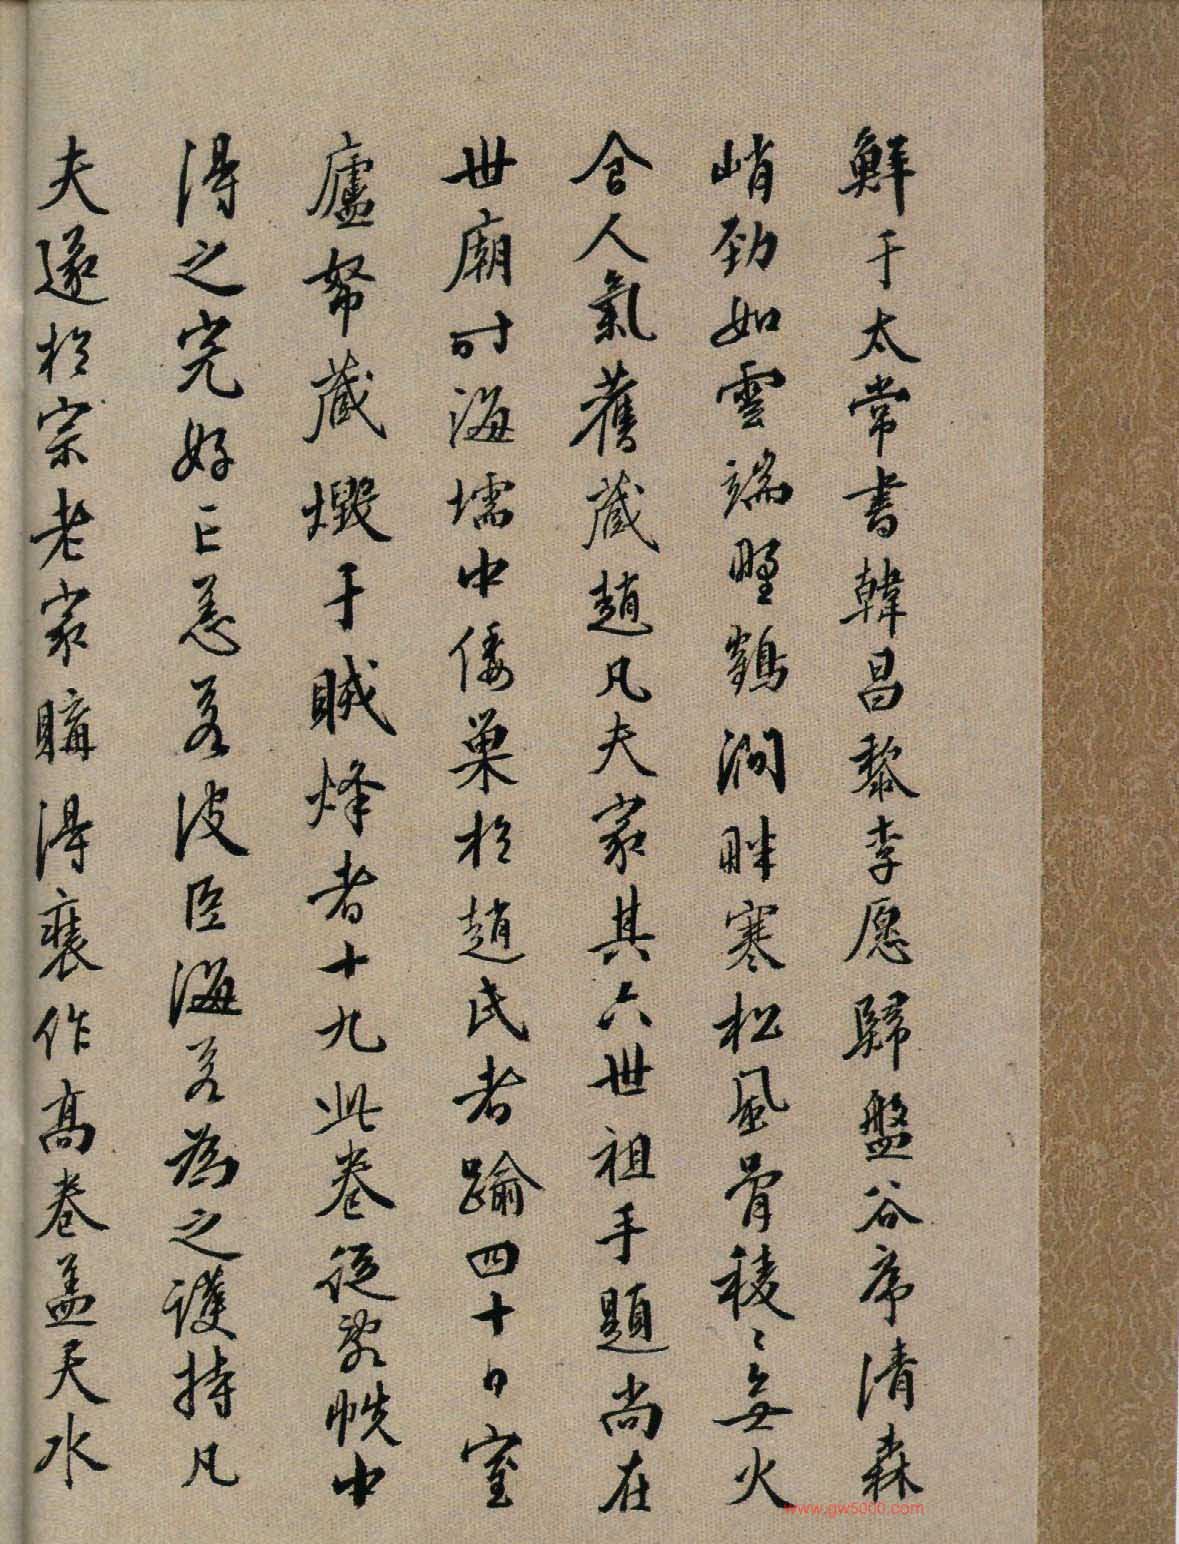 鮮于太常書韓昌黎李愿歸盤谷序清森
峭勁如雲端野鶴澗畔寒松風骨稜〻無火
食人氣舊藏趙凡夫家其六世祖手題尚在
世廟时海壖中倭巢於趙氏者踰四十日室
廬帑藏燬于賊烽者十九此卷從敗帙中
得之完好亡恙若波臣海若為之護持凡
夫遂於宗老家購得裝作高卷盖天水
www.gw5000.com